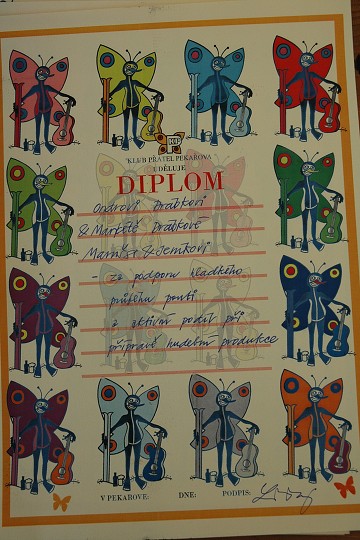 KLUB PŘÁTEL PEKAŘOVA
UDĚLUJE
DIPLOM
Ondrovi Drábkovi
& Markétě Drábkové
- za podporu hladkého
průběhu pouti
a aktivní podíl při
přípravě hudební produkce
V PEKAŘOVĚ: DNE: PODPIS: